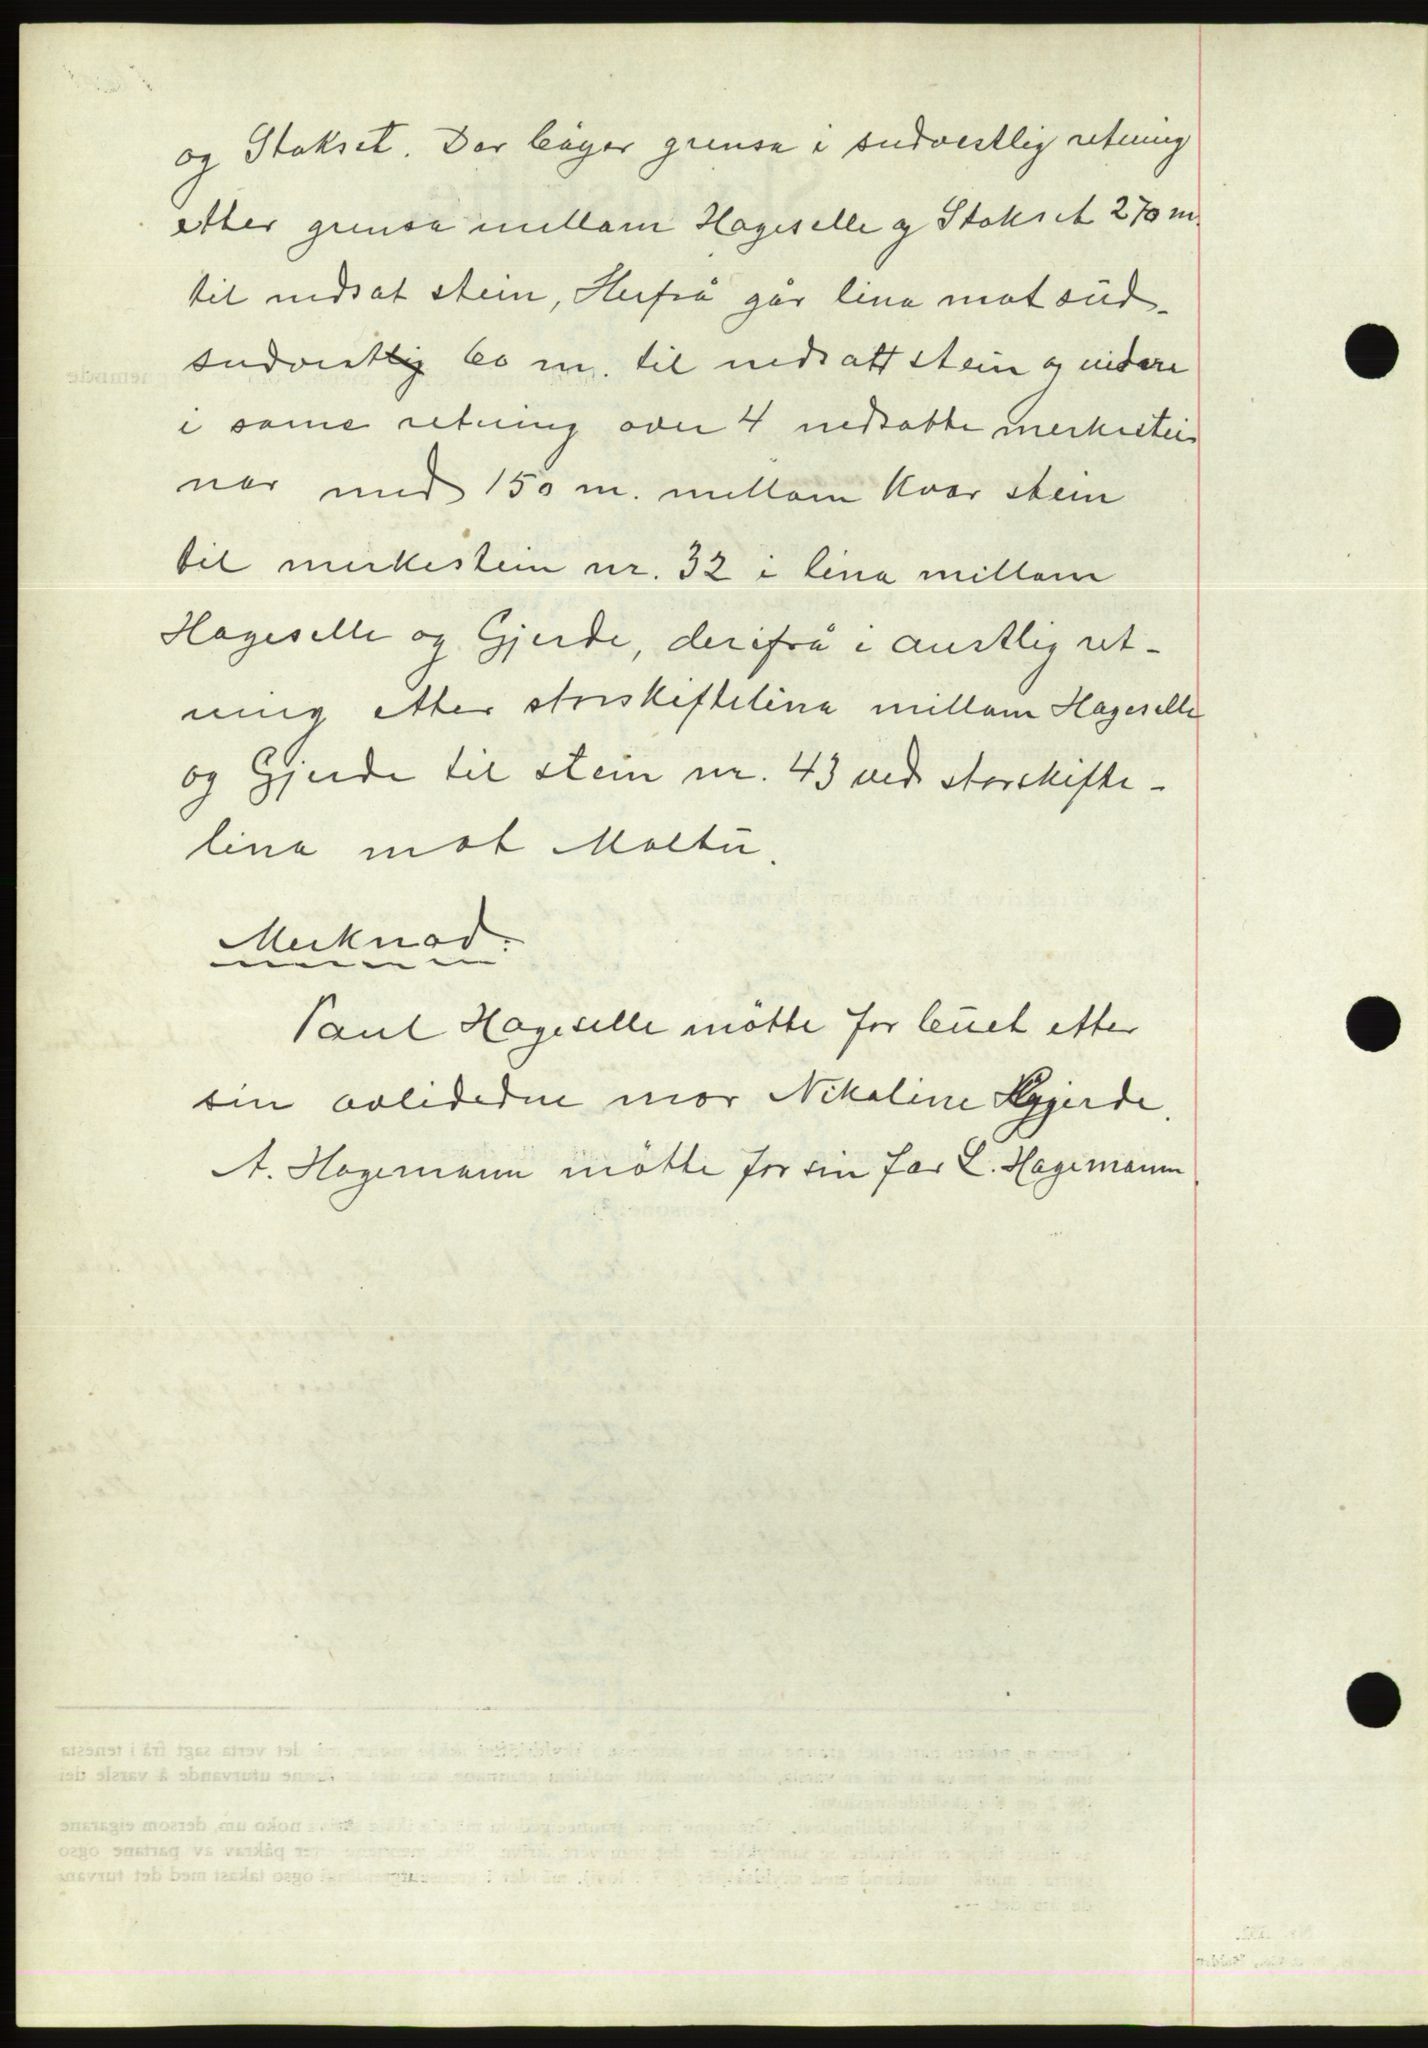 og Stokset. Der böyer grensa i sudvestlig retning
etter grensa mellom Hageselle og Stokset 270 m.
til nedsat stein, Herfrå går lina mot sud-
sudvest 60 m. til nedsatt stein og vidare
i same retning over 4 nedsatte merkestei
nar med 150 m. millom kvar stein
til merkestein nr. 32 i lina millom
Hageselle og Gjerde, derifrå i austlig ret-
ning etter storskiftelina millom Hageselle
og Gjerde til stein nr. 43 ved storskifte-
lina mot Moltu.
Merknad:
Paul Hageselle mötte for buet etter
sin avlidedne mor Nikoline Gjerde.
A. Hagemann mötte for sin far L. Hagemann.